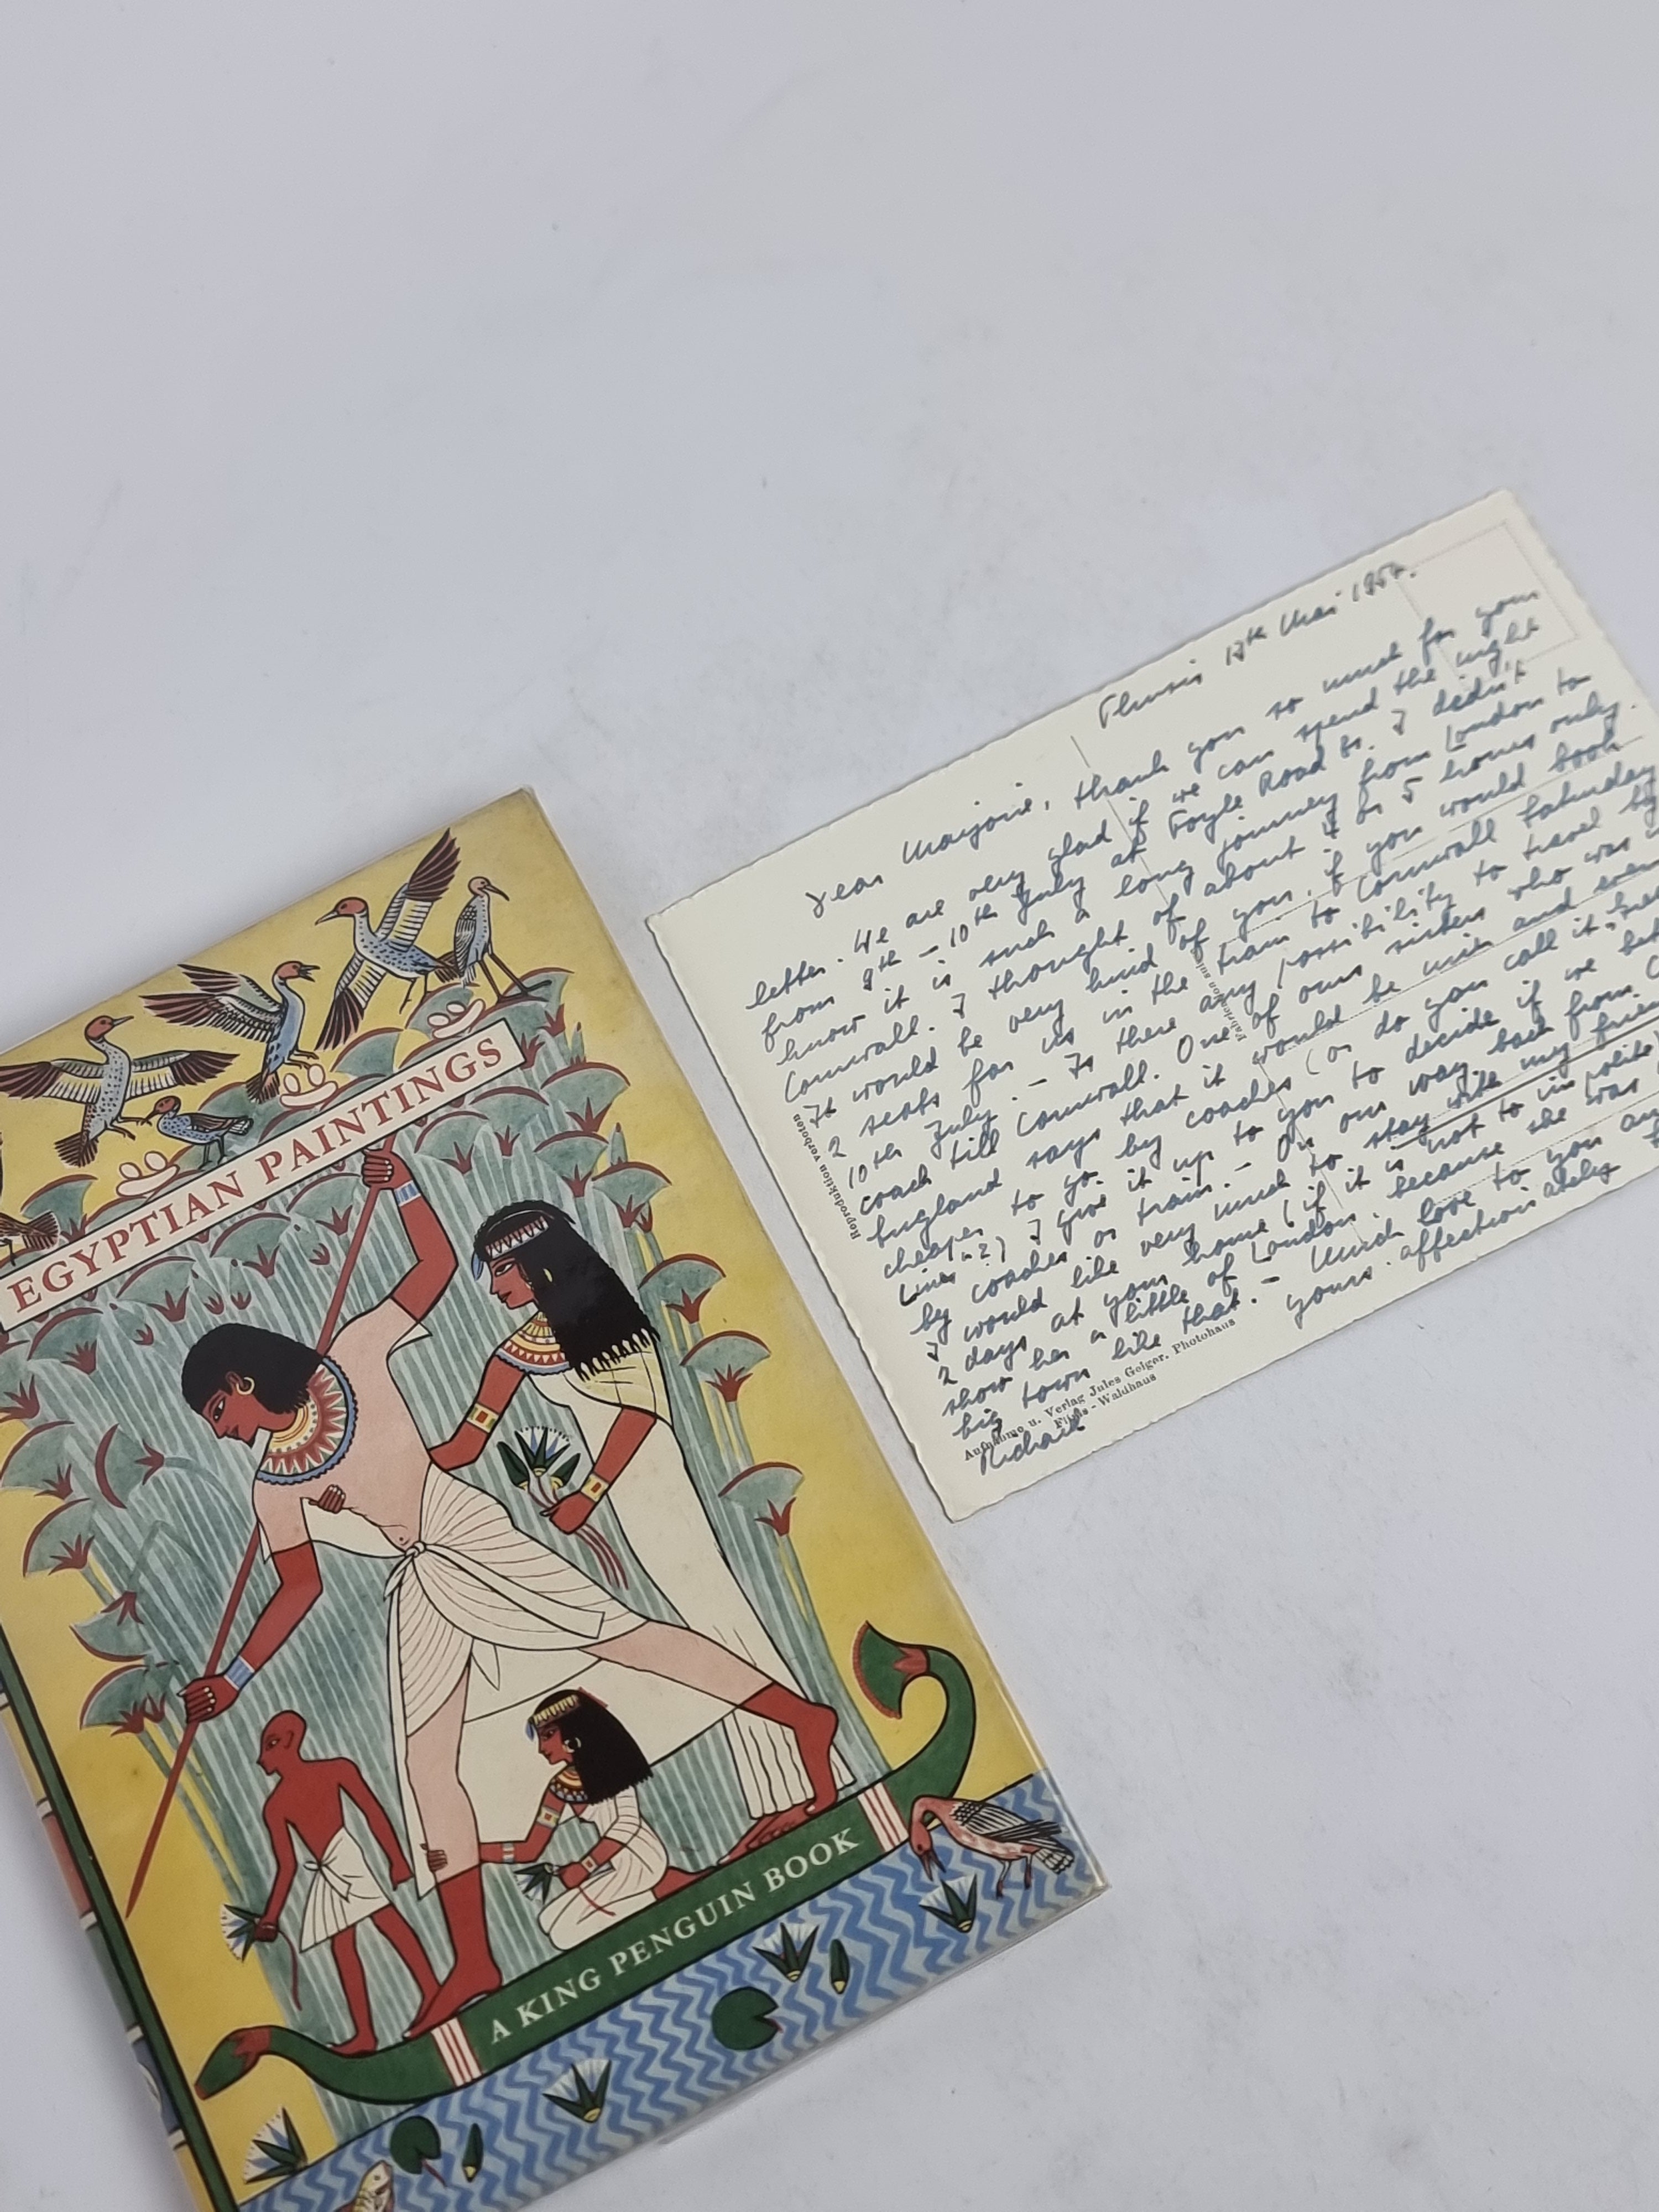 EGYPTIAN PAINTINGS
A KING PENGUIN BOOK
Thusis 17th Mai 1954.
Dear Marjorie, thank you so much for your
letter. We are very glad if we can spend the night
from 9th – 10th July at Foyle Road 81. I dedn't
know it is such a long journey from London to
Cornwall. I thought of about 4 or 5 hours only.
It would be very kind of you, if you would book
2 seats for us in the train to Cornwall Saturday
10th July. – Is there any possibility to travel by
coach till Cornwall. One of our sisters who was in
England says that it would be nice and even
cheaper to go by coaches (or do you call it
Lines"?) I give it up to you to decide if we
by coaches or train. – On our way back from
I would like very much to stay with my
2 days at your home (if it is not to impolite)
show her a little of London, because she was
big town like that. – Much love to you
yours affectionately
Reproduktion verboten
Aufnahme u. Verlag Jules Geiger, Photohaus
Flims - Waldhaus